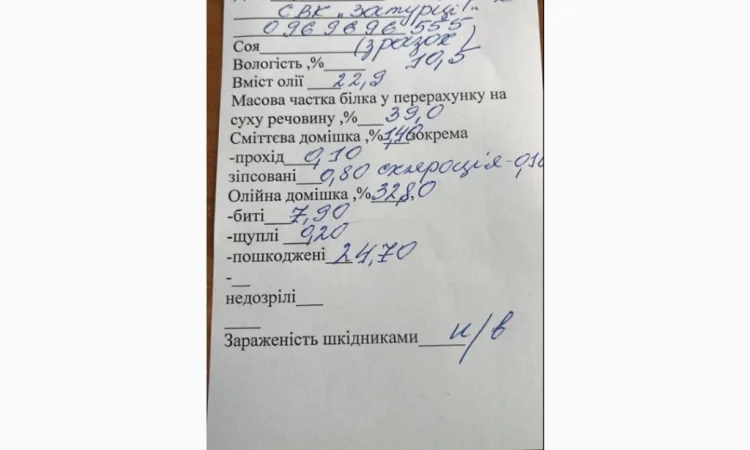 СВК "Затурці".
0969696 555
Соя (зразок)
Вологість ,% 10,5
Вміст олії 22,9
Масова частка білка у перерахунку на
суху речовину ,% 39,0
Сміттєва домішка ,% 1,40 зокрема
-прохід 0,10
зіпсовані 0,80 склероція-0,10
Олійна домішка ,% 32,80
-биті 7,90
-щуплі 0,20
-пошкоджені 24,70
-
недозрілі
Зараженість шкідниками н/в